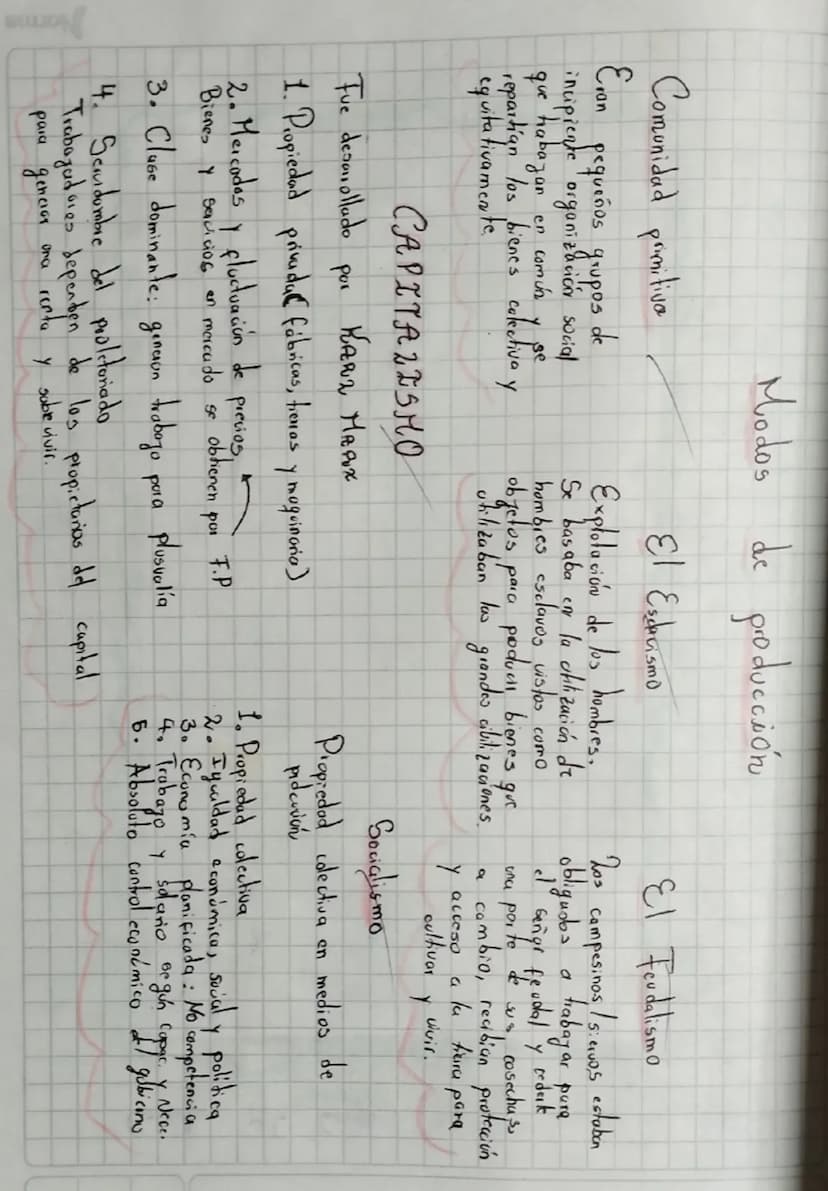 Norma
Modos de producción
Comunidad primitiva
Eran pequeños grupos de
incipiente organización social
que trabajan en común y se
repartían los bienes colectiva y
equitativamente.
El Esclavismo
Explotación de los hombres.
Se basaba en la utilización de
hombres esclavos vistos como
objetos para producir bienes que
utilizaban las grandes cibilizaciones.
El Feudalismo
Los campesinos/siervos estaban
obligados a trabajar para
el señor feudal y cederle
una parte de sus cosechas
a cambio, recibían protección
y acceso a la tierra para
cultivar y vivir.
CAPITALISMO
Fue desarrollado por KARL MARX
1. Propiedad privada (fábricas, tierras y maquinaria)
2. Mercados y fluctuación de precios
Bienes y servicios en mercado se obtienen por F.P
3. Clase dominante: generan trabajo para plusvalía
4. Servidumbre del proletariado
Trabajadores dependen de los propietarios del capital
para generar una renta y sobrevivir.
Socialismo
Propiedad colectiva en medios de
producción
1. Propiedad colectiva
2. Igualdad económica, social y política
3. Economía planificada: No competencia
4. Trabajo y salario según Capac. y Nece.
5. Absoluto control económico del gobierno